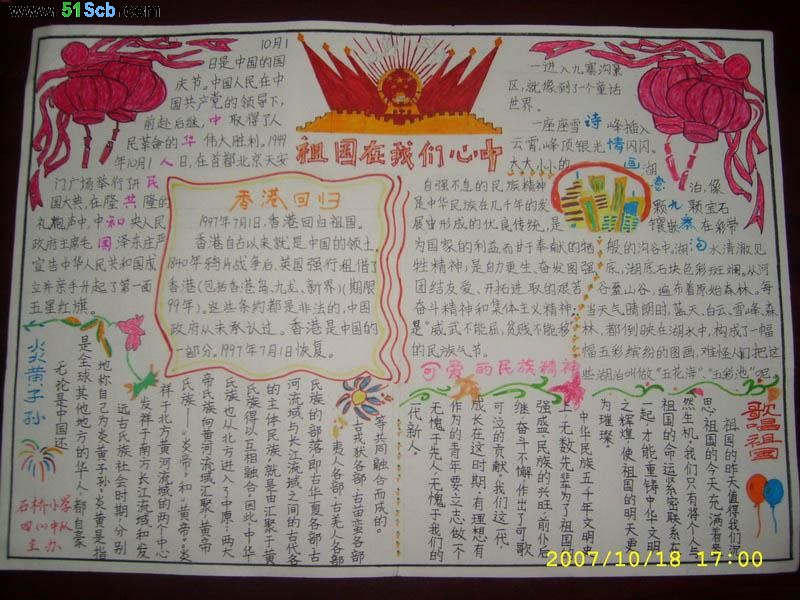 www.51Scb.com
祖国在我们心中
10月1
日是中国的国
庆节。中国人民在中
国共产党的领导下,
前赴后继,中取得了人
民革命的华伟大胜利。1949
年10月1人日,在首都北京天安
门广场举行讲民
国大典,在隆共隆的
礼炮声中,中和央人民
政府主席毛国泽东庄严
宣告中华人民共和国成
立并亲手升起了第一面
五星红旗。
香港回归
1997年7月1日,香港回归祖国。
香港自古以来就是中国的领土,
1840年鸦片战争后,英国强行租借了
香港(包括香港岛、九龙、新界)(期限
99年)。这些条约都是非法的,中国
政府从未承认过。香港是中国的
一部分。1997年7月1日恢复。
自强不息的民族精神
是中华民族在几千年的发
展宙形成的优良传统,是
为国家的利益而甘于奉献的牺
牲精神;是自助更生、奋发图强
团结友爱、开拓进取的艰苦
奋斗精神和集体主义精神;
是"威武不能屈,贫贱不能移"
的民族气节。
可爱的民族精神
一进入九寨沟景
区,就像到了一个童话
世界。
一座座雪诗峰插入
云霄,峰顶银光情闪闪。
大大小小的画湖
意泊,像
颗九颗宝石
镶嵌寨在彩带
般的沟谷中。湖沟水清澈见
底,湖底石块色彩斑斓。从河
谷至山谷,遍布着原始森林。每
当天气晴朗时,蓝天、白云、雪峰、森
林,都倒映在湖水中,构成了一幅
幅五彩缤纷的图画,难怪人们把这
些湖泊叫做"五花海"、"五彩池"呢
炎黄子孙
无论是中国还
是全球其他地方的华人,都自豪
地称自己为炎黄子孙。炎黄是指
远古氏族社会时期,分别
发祥于南方长江流域和发
祥于北方黄河流域的两个中心
氏族——"炎帝"和"黄帝"。炎
帝氏族向黄河流域汇聚,黄帝
氏族也从北方进入了中原,两大
氏族得以互相融合。因此,中华
的主体民族,就是由汇聚于黄
河流域与长江流域之间的古代各
民族的部落即古华夏各部、古
夷人各部、古羌人各部
古戎狄各部、古苗蛮各部
等共同融合而成的。
歌唱祖国
祖国的昨天值得我们深
思,祖国的今天充满着勃
然生机。我们只有将个人与
祖国的命运紧密联系在
一起,才能重铸中华文明
之辉煌,使祖国的明天更
为璀璨。
中华民族五千年文明史
上,无数先辈为了祖国
强盛、民族的兴旺,前仆后
继,奋斗不懈,作出了可歌
可泣的贡献。我们这一代,
成长在这时期,有理想有
作为的青年要立志做一个
无愧于先人,无愧于我们的
一代新人。
石桥小学
四(1)中队
主办
2007/10/18 17:00